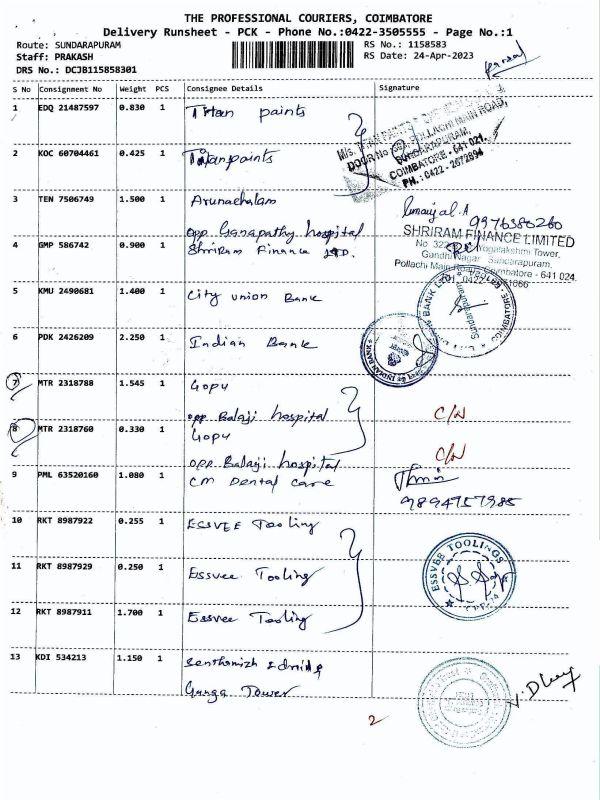 THE PROFESSIONAL COURIERS, COIMBATORE
Delivery Runsheet - PCK - Phone No.:0422-3505555 - Page No.:1
Route: SUNDARAPURAM
RS No.: 1158583
Staff: PRAKASH
RS Date: 24-Apr-2023
DRS No.: DCJB115858301
S No Consignment No Weight PCS Consignee Details Signature
1 EDQ 21487597 0.830 1 Titan paints
DOOR No POLLACHI MAIN ROAD,
SUNDARAPURAM,
COIMBATORE - 641 021.
PH.: 0422 - 2672894
2 KOC 60704461 0.425 1 Titanpaints
3 TEN 7506749 1.500 1 Arunachalam
opp. Ganapathy hospital
9976380260
4 GMP 586742 0.900 1 Shriram Finance LTD.
SHRIRAM FINANCE LIMITED
No 322 Yogalakshmi Tower,
Gandhi Nagar Sundarapuram,
Pollachi Main Road, Coimbatore - 641 024.
5 KMU 2490681 1.400 1 City union Bank
6 PDK 2426209 2.250 1 Indian Bank
INDIAN BANK
7 MTR 2318788 1.545 1 Gopu
opp. Balaji hospital
C/N
8 MTR 2318760 0.330 1 Gopu
opp. Balaji hospital
C/N
9 PML 63520160 1.080 1 CM Dental care
9894757985
10 RKT 8987922 0.255 1 ESSVEE Tooling
11 RKT 8987929 0.250 1 Essvee Tooling
ESSVEE TOOLINGS
12 RKT 8987911 1.700 1 Essvee Tooling
13 KDI 534213 1.150 1
Ganga Tower
2